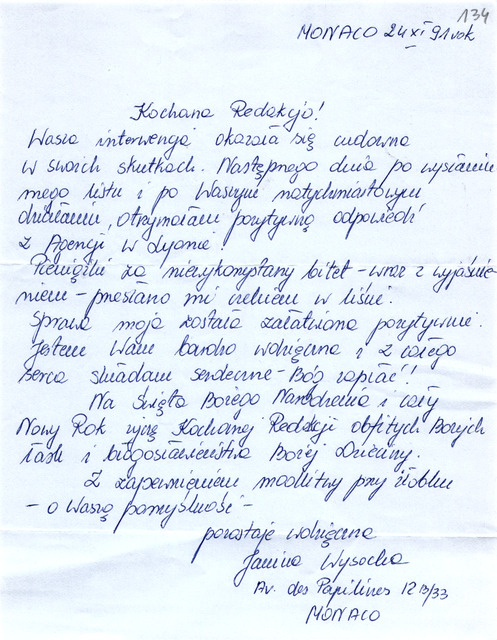 134
MONACO 24 XI 91 rok
Kochana Redakcjo!
Wasza interwencja okazała się cudowna
w swoich skutkach. Następnego dnia po wysłaniu
mego listu i po Waszym natychmiastowym
działaniu, otrzymałam pozytywną odpowiedź
z Agencji w Lyonie!
Pieniążki za niewykorzystany bilet - wraz z wyjaśnie
niem - przesłano mi czekiem w liście.
Sprawa moja została załatwiona pozytywnie.
Jestem Wam bardzo wdzięczna i z całego
serca składam serdeczne - Bóg zapłać!
Na Święta Bożego Narodzenia i cały
Nowy Rok życzę Kochanej Redakcji obfitych Bożych
łask i błogosławieństwa Bożej Dzieciny.
Z zapewnieniem modlitwy przy żłobku
- o Waszą pomyślność -
pozostaję wdzięczna
Janina Wysocka
Av. des Papalines 12 B/33
MONACO